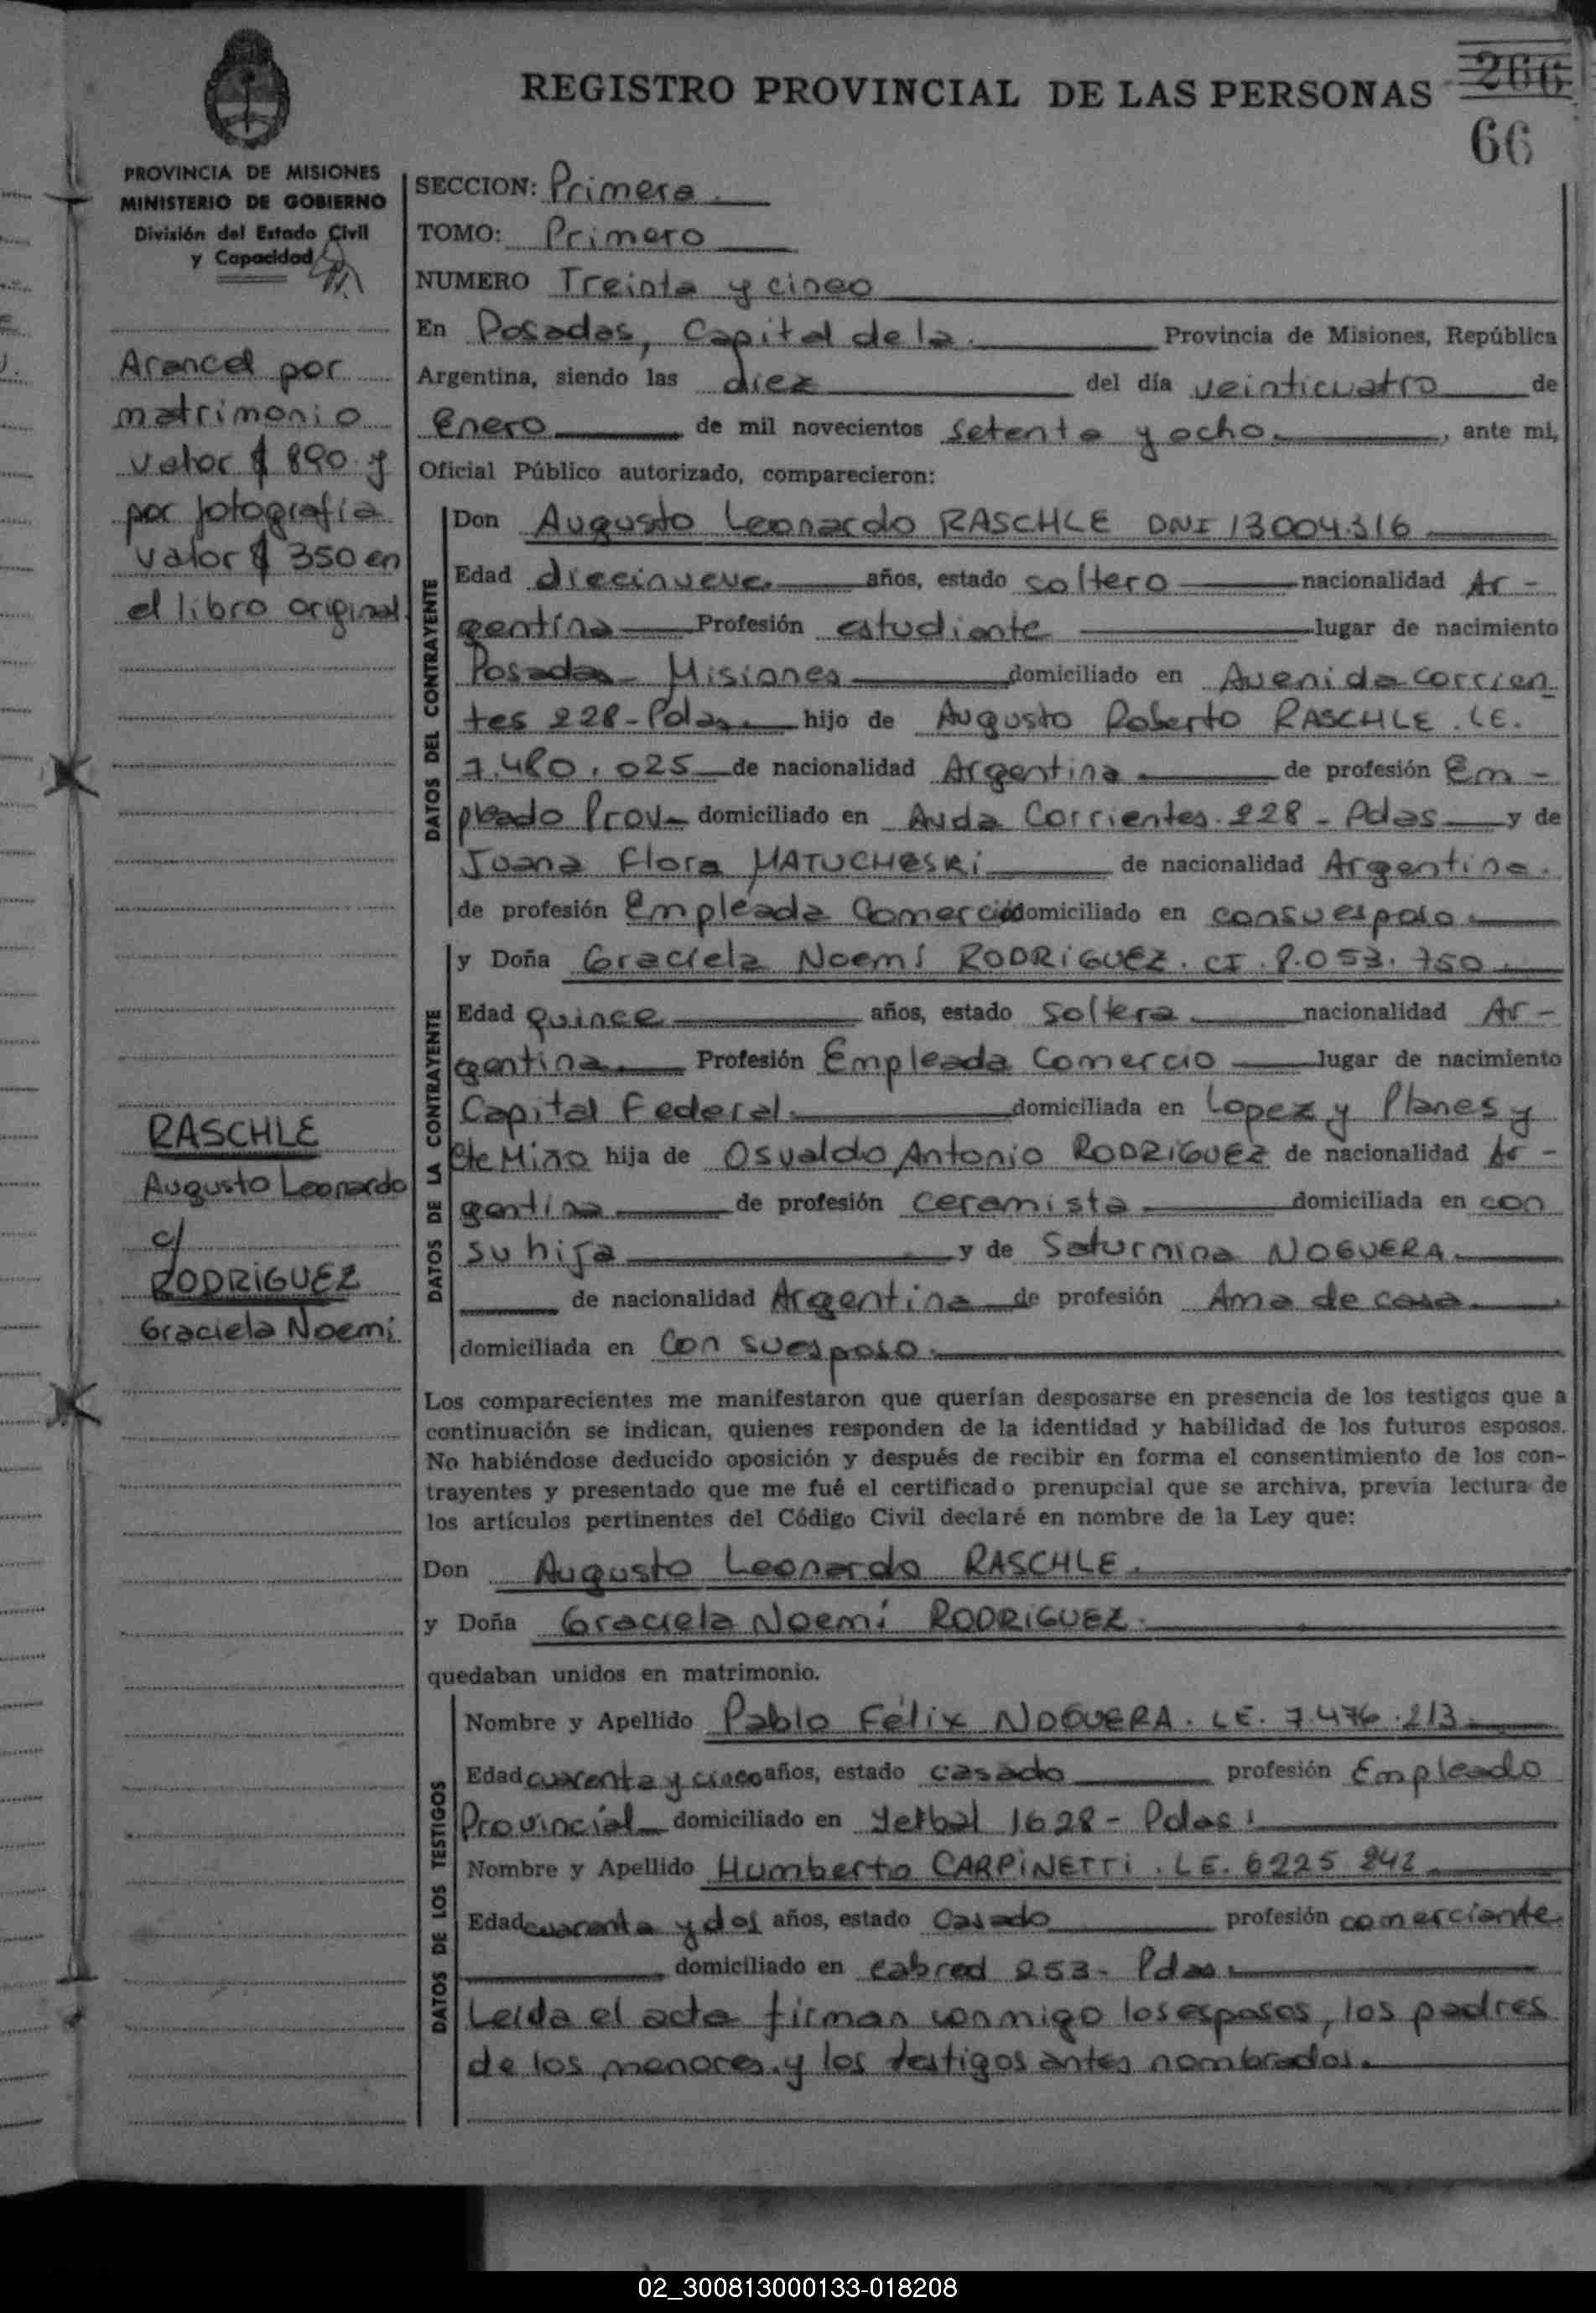 REGISTRO PROVINCIAL DE LAS PERSONAS
266
66
PROVINCIA DE MISIONES
MINISTERIO DE GOBIERNO
División del Estado Civil
y Capacidad
Arancel por
matrimonio
valor $ 890 y
por fotografía
valor $ 350 en
el libro original
RASCHLE
Augusto Leonardo
c/
RODRIGUEZ
Graciela Noemí
SECCION: Primera
TOMO: Primero
NUMERO Treinta y cinco
En Posadas, Capital de la Provincia de Misiones, República
Argentina, siendo las diez del día veinticuatro de
Enero de mil novecientos setenta y ocho, ante mi,
Oficial Público autorizado, comparecieron:
DATOS DEL CONTRAYENTE
Don Augusto Leonardo RASCHLE DNI 13004.316
Edad diecinueve años, estado soltero nacionalidad Ar-
gentina Profesión estudiante lugar de nacimiento
Posadas - Misiones domiciliado en Avenida corrien
tes 228 - Pdas. hijo de Augusto Roberto RASCHLE. LE.
7.480.025 de nacionalidad Argentina de profesión Em-
pleado Prov. domiciliado en Avda Corrientes 228 - Pdas y de
Juana Flora MATUCHESKI de nacionalidad Argentina.
de profesión Empleada Comercio domiciliado en con su esposo.
DATOS DE LA CONTRAYENTE
y Doña Graciela Noemí RODRIGUEZ. CI. 8.053.750
Edad quince años, estado soltera nacionalidad Ar-
gentina Profesión Empleada Comercio lugar de nacimiento
Capital Federal. domiciliada en Lopez y Planes y
Cte Miño hija de Osvaldo Antonio RODRIGUEZ de nacionalidad Ar-
gentina de profesión ceramista domiciliada en con
su hija y de Saturnina NOGUERA.
de nacionalidad Argentina de profesión Ama de casa
domiciliada en Con su esposo.
Los comparecientes me manifestaron que querían desposarse en presencia de los testigos que a
continuación se indican, quienes responden de la identidad y habilidad de los futuros esposos.
No habiéndose deducido oposición y después de recibir en forma el consentimiento de los con-
trayentes y presentado que me fué el certificado prenupcial que se archiva, previa lectura de
los artículos pertinentes del Código Civil declaré en nombre de la Ley que:
Don Augusto Leonardo RASCHLE.
y Doña Graciela Noemí RODRIGUEZ.
quedaban unidos en matrimonio.
DATOS DE LOS TESTIGOS
Nombre y Apellido Pablo Félix NOGUERA. LE. 7.476.213
Edad cuarenta y cinco años, estado casado profesión Empleado
Provincial domiciliado en Yerbal 1628 - Pdas.
Nombre y Apellido Humberto CARPINETTI. LE. 6225 242
Edad cuarenta y dos años, estado Casado profesión comerciante
domiciliado en cabred 253 - Pdas.
Leída el acta firman conmigo los esposos, los padres
de los menores y los testigos antes nombrados.
02_300813000133-018208